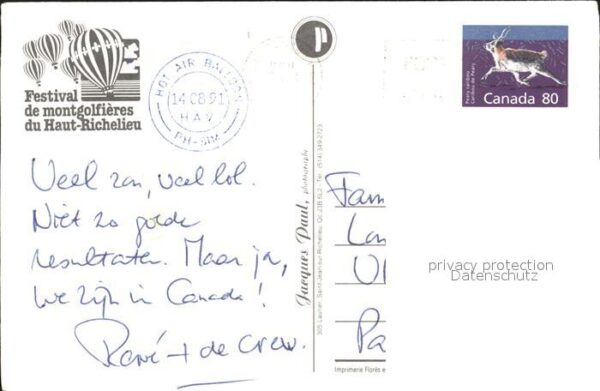 Festival
de montgolfières
du Haut-Richelieu
HOT AIR BALLOON
14 08 91
PH-SIM
P
Peary caribou
Caribou de Peary
Canada 80
Veel zon, veel lol.
Niet zo goede
resultaten. Maar ja,
we zijn in Canada!
René + de crew.
Jacques Paul, photographe
305 Laurier, Saint-Jean-sur-Richelieu, Qc J2B 6L2 - Tél.: (514) 349-2723
Fam
Lan
Ul
Pa
privacy protection
Datenschutz
Imprimerie Florès e